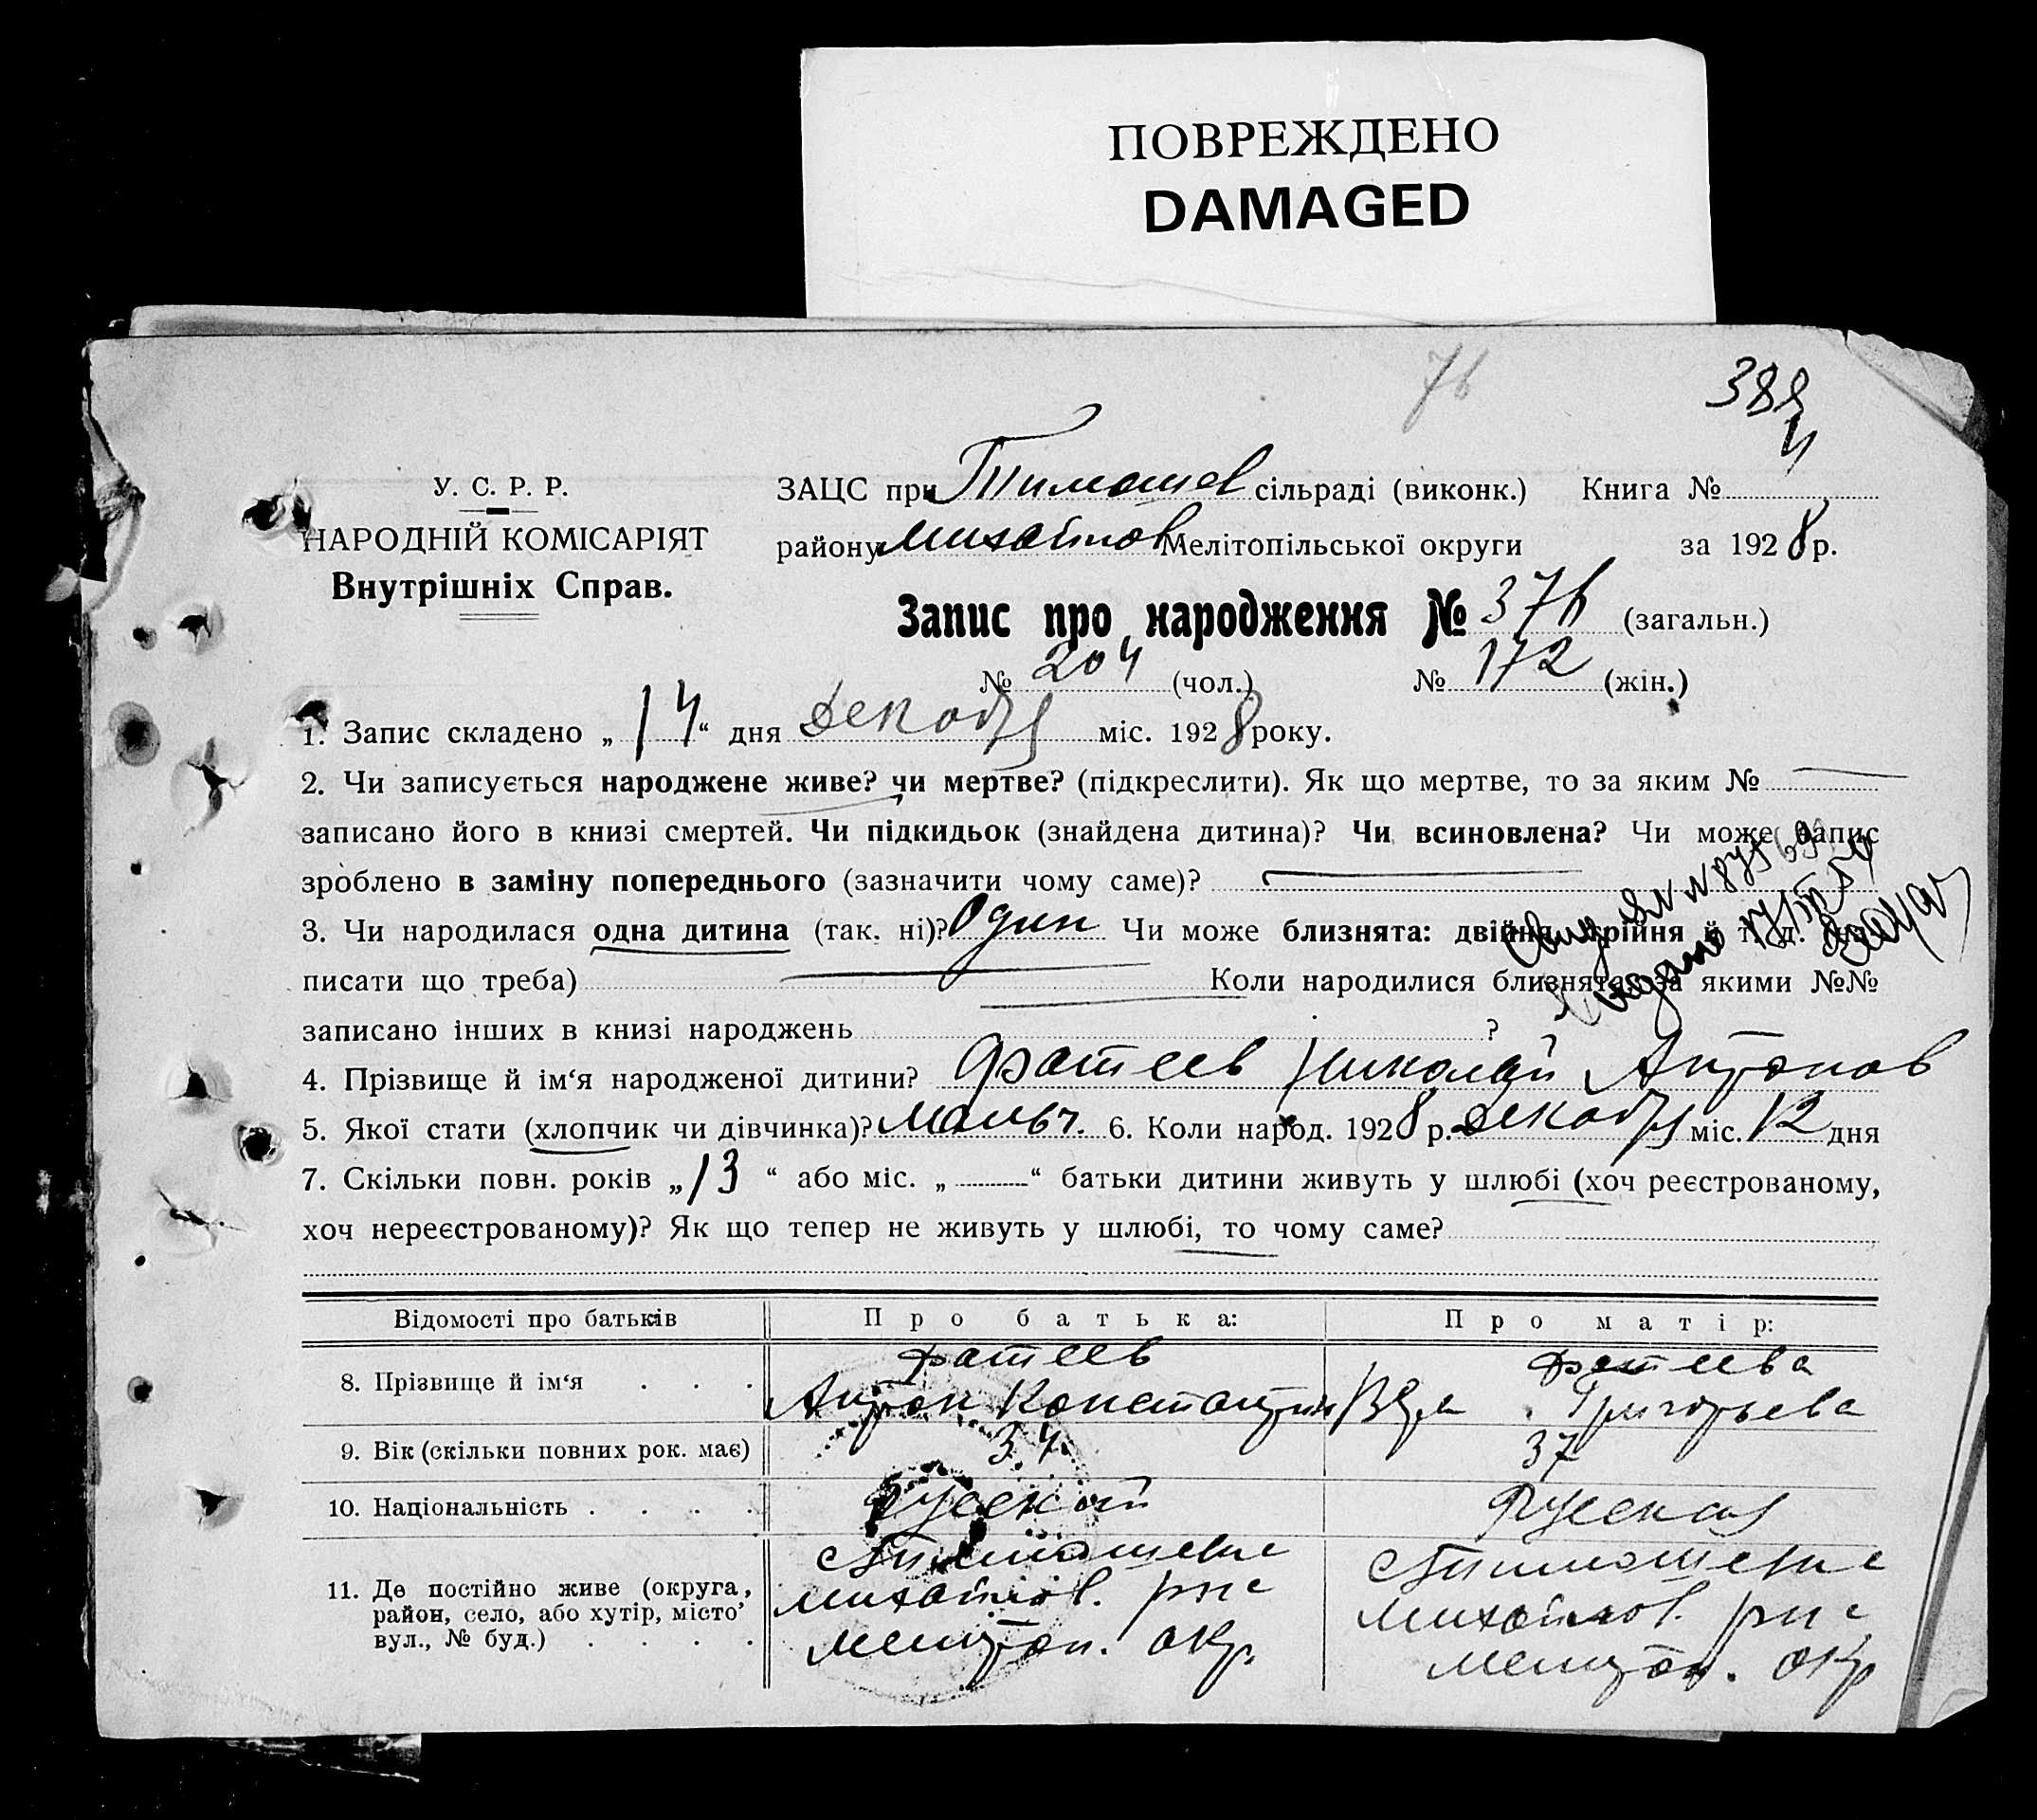 ПОВРЕЖДЕНО
DAMAGED
76
388
У. С. Р. Р.
НАРОДНІЙ КОМІСАРІЯТ
Внутрішніх Справ.
ЗАЦС при Тимошев сільраді (виконк.) Книга №
району Михайлов Мелітопільської округи за 1928 р.
Запис про народження № 376 (загальн.)
№ 204 (чол.) № 172 (жін.)
1. Запис складено „14“ дня Декабря міс. 1928 року.
2. Чи записується народжене живе? чи мертве? (підкреслити). Як що мертве, то за яким №
записано його в книзі смертей. Чи підкидьок (знайдена дитина)? Чи всиновлена? Чи може запис
зроблено в заміну попереднього (зазначити чому саме)?
3. Чи народилася одна дитина (так, ні)? Один Чи може близнята: двійня, трійня й т. д.
писати що треба) Коли народилися близнята, за якими №№
записано інших в книзі народжень ?
4. Прізвище й ім‘я народженої дитини? Фатеев Николай Антонов
5. Якої стати (хлопчик чи дівчинка)? Мальч. 6. Коли народ. 1928 р. Декабря міс. 12 дня
7. Скільки повн. років „13“ або міс. „ “ батьки дитини живуть у шлюбі (хоч реєстрованому,
хоч нереєстрованому)? Як що тепер не живуть у шлюбі, то чому саме?
Відомості про батьків Про батька: Про матір:
8. Прізвище й ім‘я . . . Фатеев Антон Константин Фатеева Григорьева
9. Вік (скільки повних рок. має) 34 37
10. Національність . . . . Русский Русская
11. Де постійно живе (округа, район, село, або хутір, місто, вул., № буд.) . . . .
с Тимошевка
Михайлов. рне
Мелитоп. окр.
с Тимошевка
Михайлов. рне
Мелитоп. окр